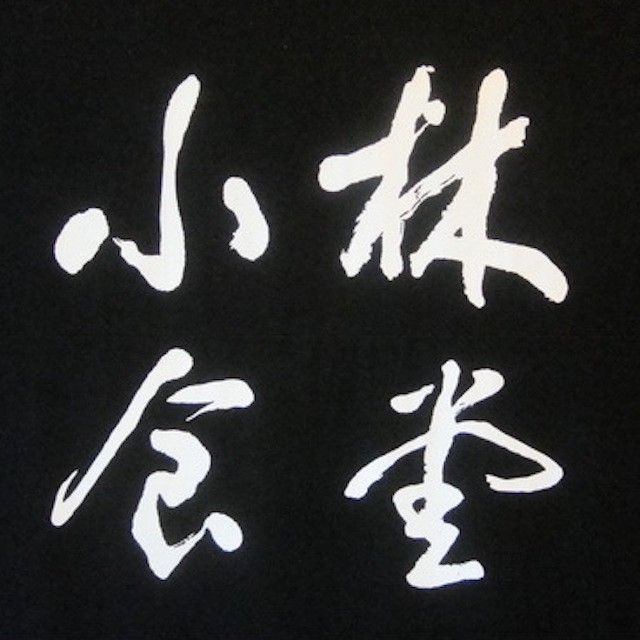 小林
食堂